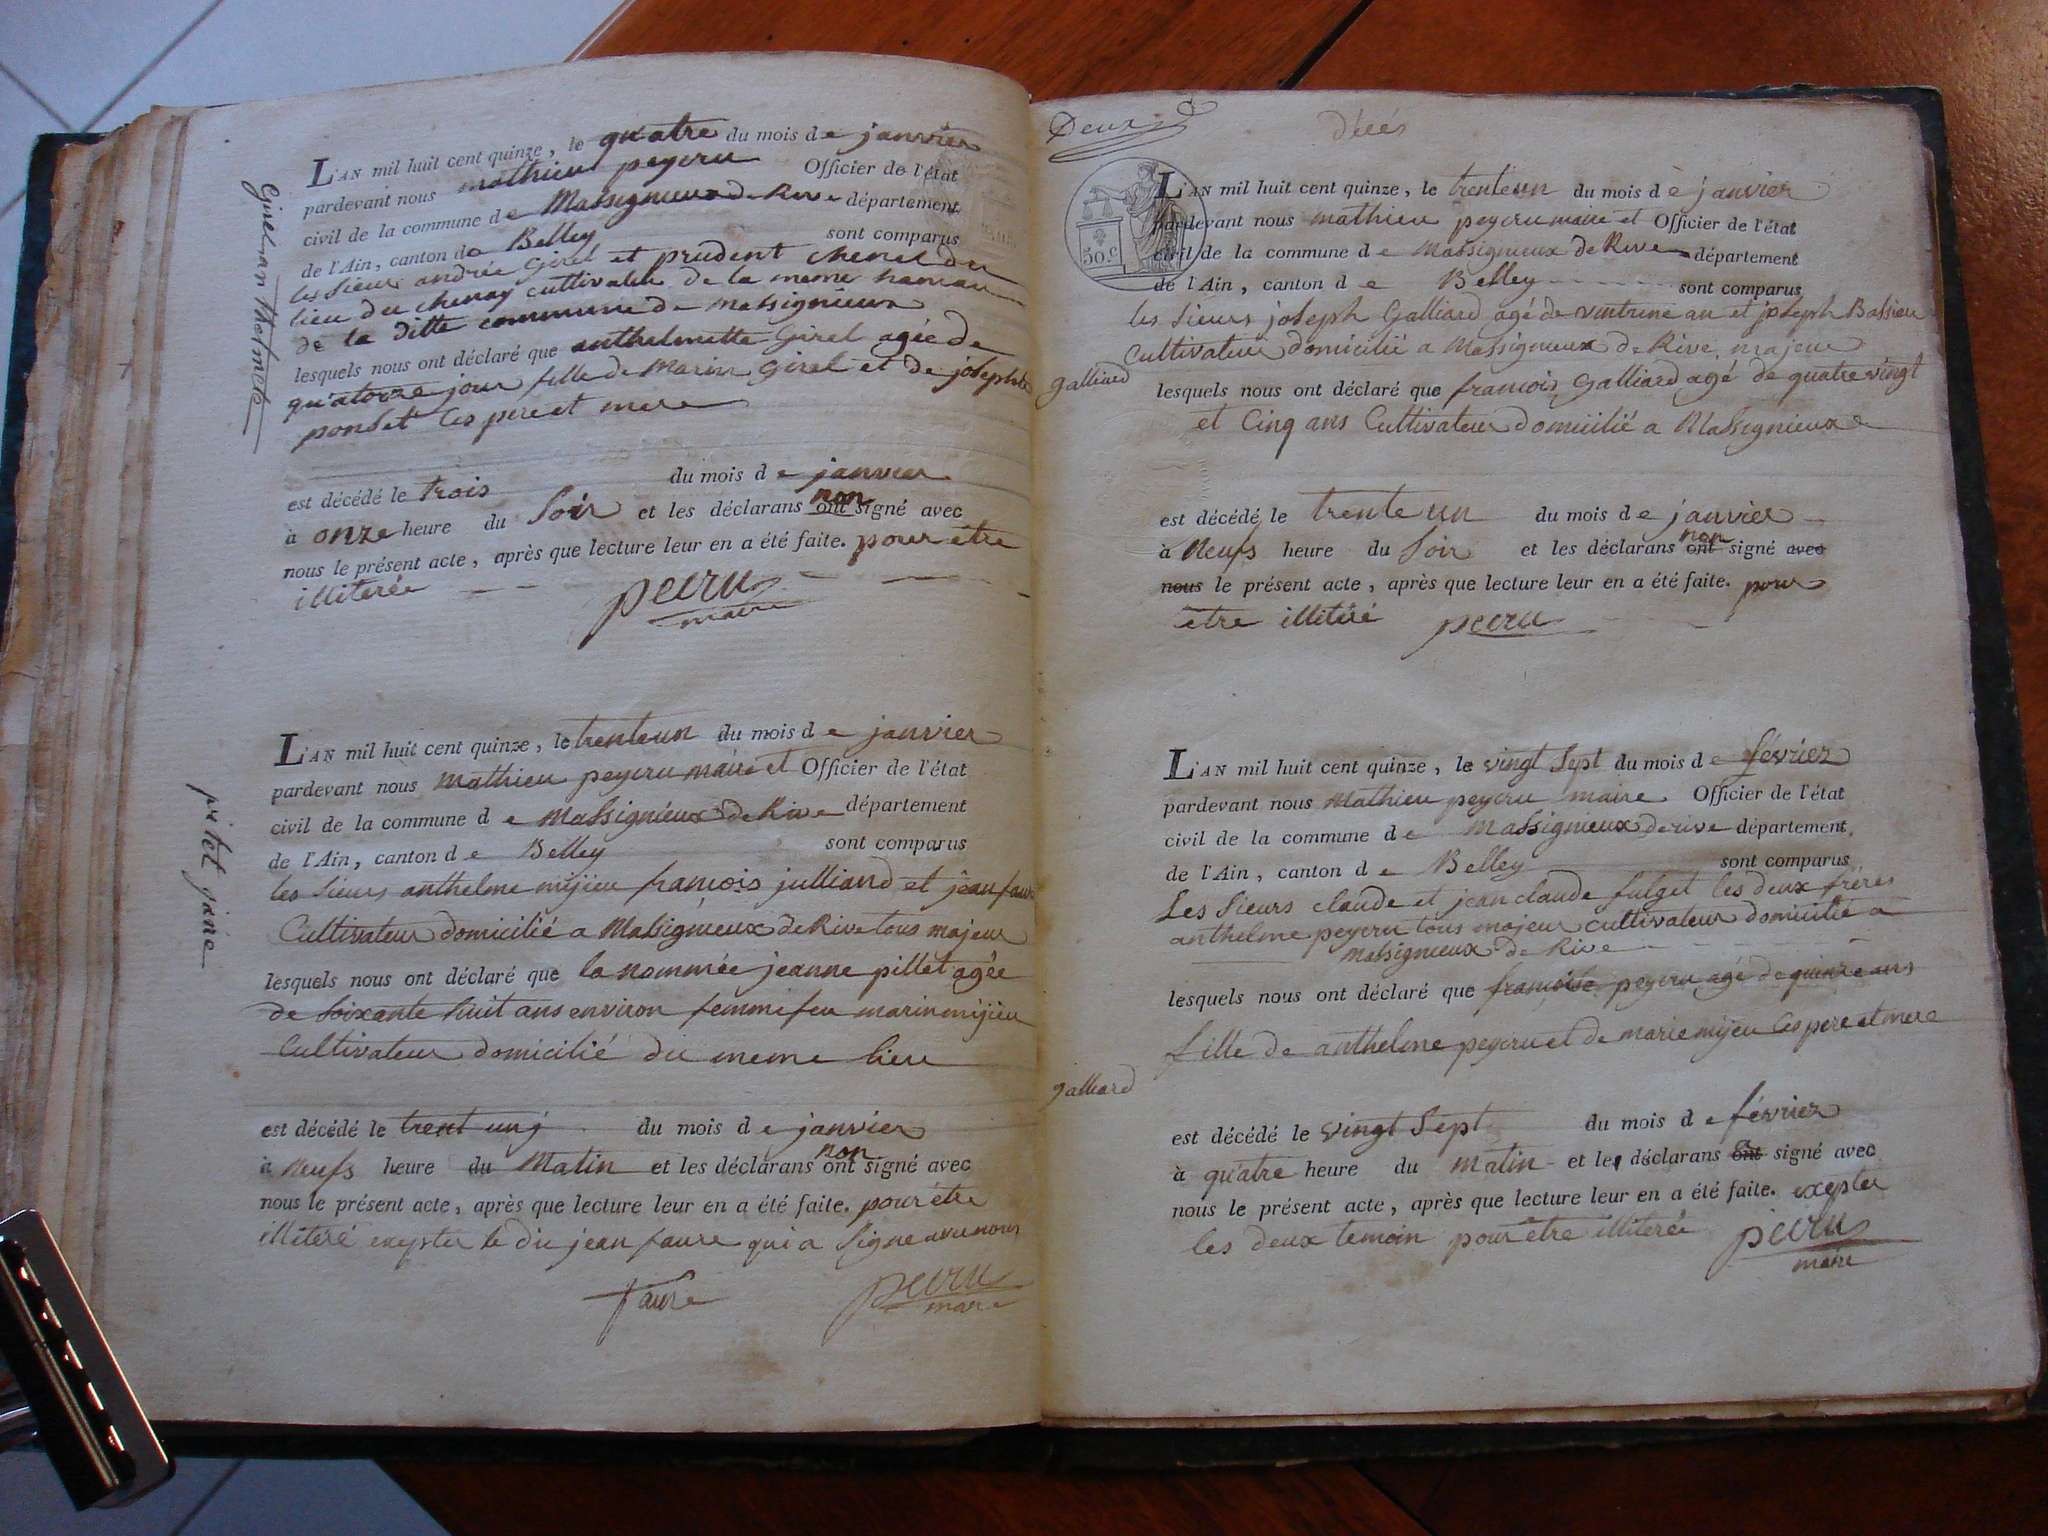 L'AN mil huit cent quinze, le quatre du mois de janvier
pardevant nous mathieu peycru Officier de l'état
civil de la commune de Massignieux de Rive département
de l'Ain, canton de Belley sont comparus
les sieurs andrée Girel et prudent chenet du
lieu du chenay cultivateur de la meme hamau
de la ditte commune de massignieux
lesquels nous ont déclaré que anthelmette Girel agée de
quatorze jour fille de Marin Girel et de josephte
ponset ces pere et mere
est décédé le trois du mois de janvier
à onze heure du soir et les déclarans ont non signé avec
nous le présent acte, après que lecture leur en a été faite. pour etre
illiterée
pecru
maire
Girel
thelmete
L'AN mil huit cent quinze, le trenteun du mois de janvier
pardevant nous mathieu peycru maire et Officier de l'état
civil de la commune de Massignieux de Rive département
de l'Ain, canton de Belley sont comparus
les sieurs anthelme mijieu francois julliand et jean faure
Cultivateur domicilié a Massignieux de Rive tous majeur
lesquels nous ont déclaré que la nommée jeanne pillet agée
de soixante huit ans environ femme feu marin mijieu
Cultivateur domicilié du meme lieu
est décédé le trent unj du mois de janvier
à neufs heure du Matin et les déclarans ont non signé avec
nous le présent acte, après que lecture leur en a été faite. pour être
illiteré excepter le du jean faure qui a signe avec nous
faure pecru
maire
Deux
L'AN mil huit cent quinze, le trenteun du mois de janvier
pardevant nous mathieu peycru maire et Officier de l'état
civil de la commune de Massignieux de Rive département
de l'Ain, canton de Belley sont comparus
50.c
les sieurs joseph Galliard agé de an et joseph Bassieu
Cultivateur domicilié a Massignieux de Rive majeur
galliard
lesquels nous ont déclaré que francois Galliard agé de quatre vingt
et Cinq ans Cultivateur domicilié a Massignieux
est décédé le trente un du mois de janvier
à neufs heure du soir et les déclarans ont non signé avec
nous le présent acte, après que lecture leur en a été faite. pour
être illitéré pecru
L'AN mil huit cent quinze, le vingt sept du mois de février
pardevant nous Mathieu peycru maire Officier de l'état
civil de la commune de Massignieux de rive département
de l'Ain, canton de Belley sont comparus
Les sieurs claude et jean claude fulget les deux frères
anthelme peycru tous majeur cultivateur domicilié a
massignieux de Rive
lesquels nous ont déclaré que francoise peycru agé de quinze ans
fille de anthelme peycru et de marie mijeu ces pere et mere
galliard
est décédé le vingt sept du mois de février
à quatre heure du matin et les déclarans ont signé avec
nous le présent acte, après que lecture leur en a été faite. excepter
les deux temoin pour etre illiterée pecru
maire